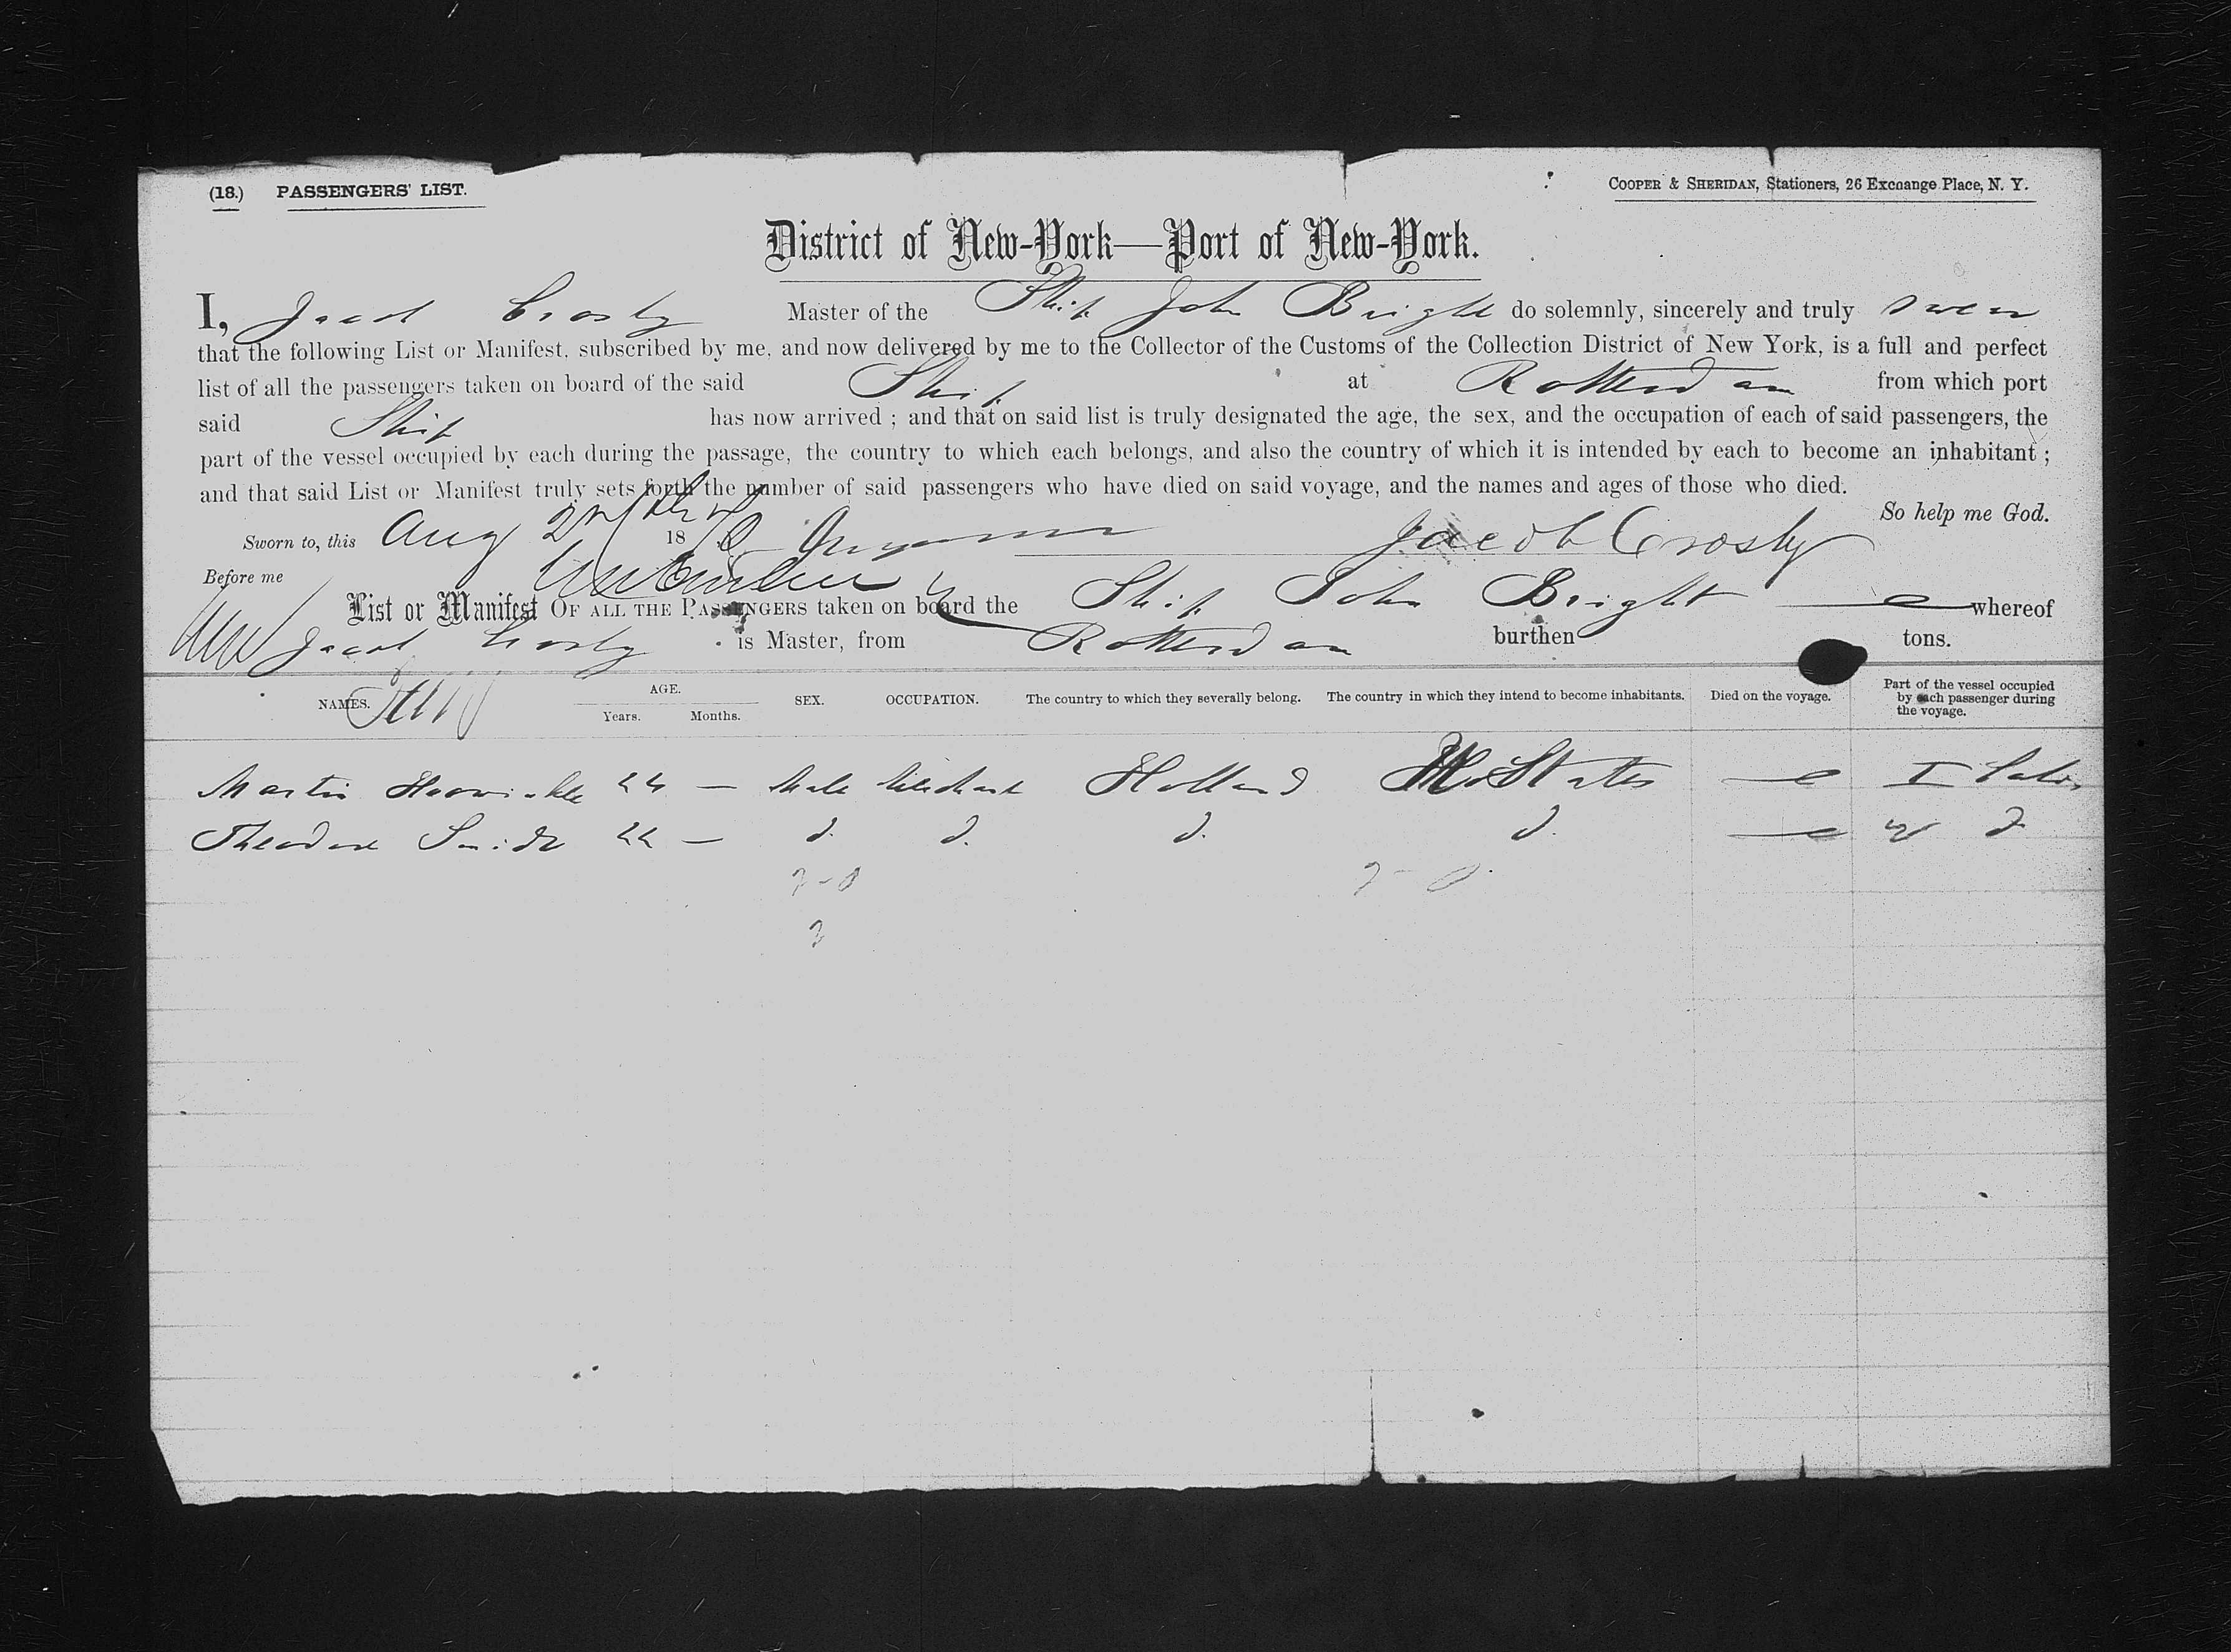 (18.) PASSENGERS' LIST.
COOPER & SHERIDAN, Stationers, 26 Exchange Place, N. Y.
District of New-York—Port of New-York.
I, Jacob Crosby Master of the Ship John Bright do solemnly, sincerely and truly swear
that the following List or Manifest, subscribed by me, and now delivered by me to the Collector of the Customs of the Collection District of New York, is a full and perfect
list of all the passengers taken on board of the said Ship at Rotterdam from which port
said Ship has now arrived ; and that on said list is truly designated the age, the sex, and the occupation of each of said passengers, the
part of the vessel occupied by each during the passage, the country to which each belongs, and also the country of which it is intended by each to become an inhabitant ;
and that said List or Manifest truly sets forth the number of said passengers who have died on said voyage, and the names and ages of those who died.
So help me God.
Sworn to, this Aug 18 Jacob Crosby
Before me
List or Manifest OF ALL THE PASSENGERS taken on board the Ship John Bright whereof
Jacob Crosby is Master, from Rotterdam burthen tons.
NAMES. AGE. Years. Months. SEX. OCCUPATION. The country to which they severally belong. The country in which they intend to become inhabitants. Died on the voyage. Part of the vessel occupied by each passenger during the voyage.
Martin — Male Merchant Holland States —
Theodore 22 — d. d. d. d. — d
2 - 0 2 - 0
2